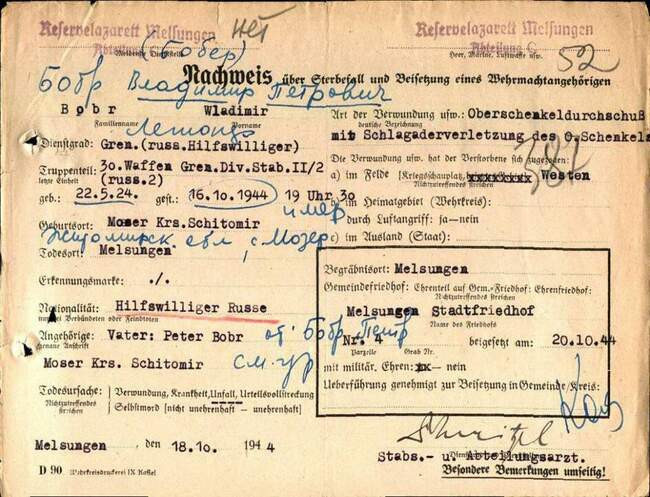 Reservelazarett Melsungen
Abteilung C
Meldende Dienststelle
Reservelazarett Melsungen
Abteilung C
Heer, Marine, Luftwaffe usw.
нет
52
(Бобер)
Nachweis über Sterbefall und Beisetzung eines Wehrmachtangehörigen
Бобр Владимир Петрович
Bobr Wladimir
Familienname Vorname
Dienstgrad: Gren.(russ.Hilfswilliger)
Truppenteil: 30.Waffen Gren.Div.Stab.II/2
letzte Einheit (russ.2)
geb.: 22.5.24. gest.: 16.10.1944 19 Uhr 30
умер
Geburtsort: Moser Krs.Schitomir
Житомирск обл, с. Мозер
Todesort: Melsungen
Erkennungsmarke: ./.
Nationalität: Hilfswilliger Russe
nur bei Verbündeten oder Feindtoten
Angehörige: Vater: Peter Bobr
genaue Anschrift
от. Бобр Петр
Moser Krs. Schitomir
Todesursache: Verwundung, Krankheit, Unfall, Urteilsvollstreckung
Nichtzutreffendes streichen Selbstmord [nicht unehrenhaft – unehrenhaft]
Melsungen den 18.10. 1944
D 90 Wehrkreisdruckerei IX Kassel
Art der Verwundung usw.: Oberschenkeldurchschuß
deutsche Bezeichnung
mit Schlagaderverletzung des O-Schenkels
Die Verwundung usw. hat der Verstorbene sich zugezogen:
a) im Felde [Kriegsschauplatz, xxxxxxxx Westen
Nichtzutreffendes streichen
b) im Heimatgebiet (Wehrkreis):
durch Luftangriff: ja–nein
c) im Ausland (Staat):
Begräbnisort: Melsungen
Gemeindefriedhof: Ehrenteil auf Gem.-Friedhof: Ehrenfriedhof:
Nichtzutreffendes streichen
Melsungen Stadtfriedhof
Name des Friedhofs
Nr. 4 beigesetzt am 20.10.44
Parzelle Grab Nr.
mit militär. Ehren: xx – nein
Ueberführung genehmigt zur Beisetzung in Gemeinde/Kreis:
Stabs.- u. Abteilungsarzt.
Besondere Bemerkungen umseitig!